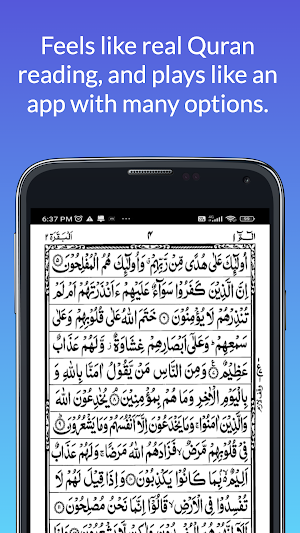 Feels like real Quran
reading, and plays like an
app with many options.
6:37 PM
البقرة ٢
٤
الٓمّٓ ١
اُولٰٓئِكَ عَلٰى هُدًى مِّنْ رَّبِّهِمْ وَاُولٰٓئِكَ هُمُ الْمُفْلِحُوْنَ ۝٥
اِنَّ الَّذِيْنَ كَفَرُوْا سَوَآءٌ عَلَيْهِمْ ءَاَنْذَرْتَهُمْ اَمْ لَمْ
تُنْذِرْهُمْ لَا يُؤْمِنُوْنَ ۝٦ خَتَمَ اللّٰهُ عَلٰى قُلُوْبِهِمْ وَعَلٰى
سَمْعِهِمْ وَعَلٰٓى اَبْصَارِهِمْ غِشَاوَةٌ وَّلَهُمْ عَذَابٌ
عَظِيْمٌ ۝٧ وَمِنَ النَّاسِ مَنْ يَّقُوْلُ اٰمَنَّا بِاللّٰهِ وَ
بِالْيَوْمِ الْاٰخِرِ وَمَا هُمْ بِمُؤْمِنِيْنَ ۝٨ يُخٰدِعُوْنَ اللّٰهَ
وَالَّذِيْنَ اٰمَنُوْا وَمَا يَخْدَعُوْنَ اِلَّآ اَنْفُسَهُمْ وَمَا يَشْعُرُوْنَ ۝٩
فِيْ قُلُوْبِهِمْ مَّرَضٌ فَزَادَهُمُ اللّٰهُ مَرَضًا وَلَهُمْ عَذَابٌ
اَلِيْمٌۢ بِمَا كَانُوْا يَكْذِبُوْنَ ۝١٠ وَاِذَا قِيْلَ لَهُمْ لَا
تُفْسِدُوْا فِي الْاَرْضِ قَالُوْٓا اِنَّمَا نَحْنُ مُصْلِحُوْنَ ۝١١